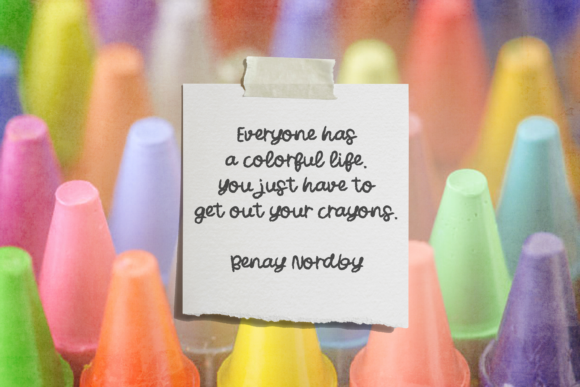 Everyone has
a colorful life.
You just have to
get out your crayons.
Benay Nordby